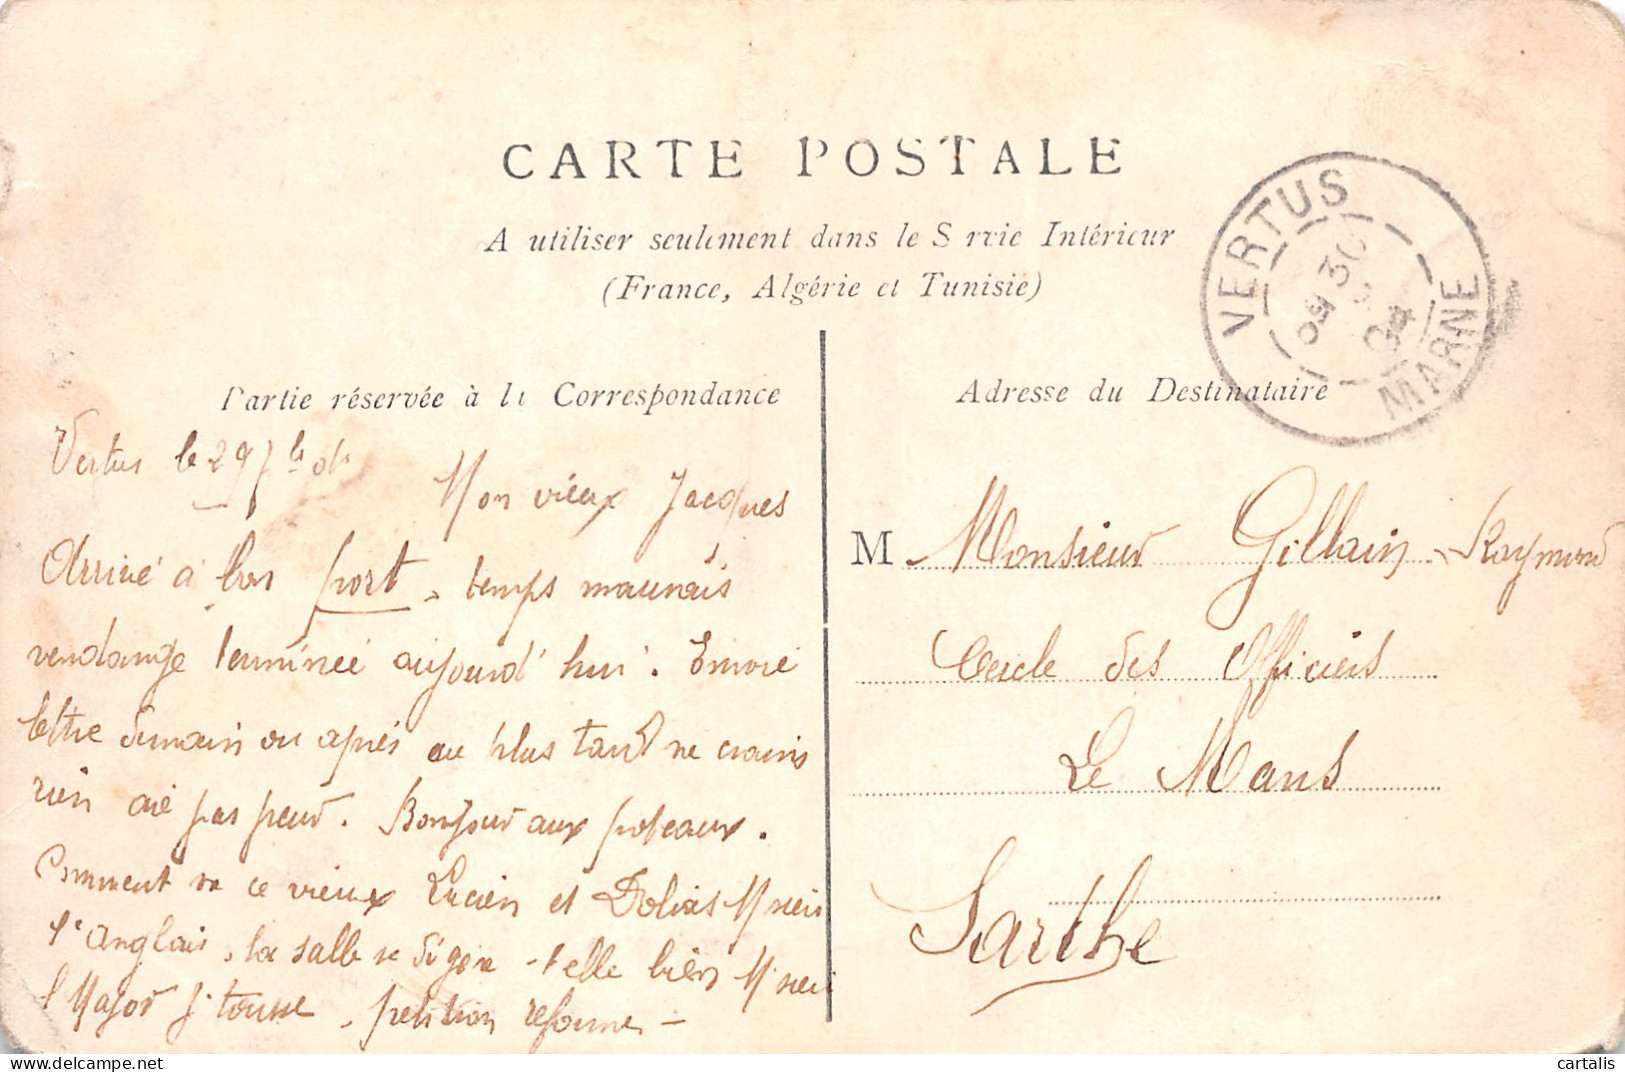 CARTE POSTALE
A utiliser seulement dans le S rvic Intérieur
(France, Algérie et Tunisie)
VERTUS
30
04
MARNE
Partie réservée à la Correspondance
Vertus le 29 7bre 04
Mon vieux Jacques
Arrivé à bon port, temps mauvais
vendange terminée aujourd'hui. Envoie
lettre demain ou après au plus tard ne crains
rien aie pas peur. Bonjour aux poteaux.
Comment va ce vieux Lucien et
l'anglais, la salle se digère-t elle bien
l Major j tousse, petition reforme -
Adresse du Destinataire
M Monsieur Gillain Raymond
Cercle des Officiers
Le Mans
Sarthe
cartalis